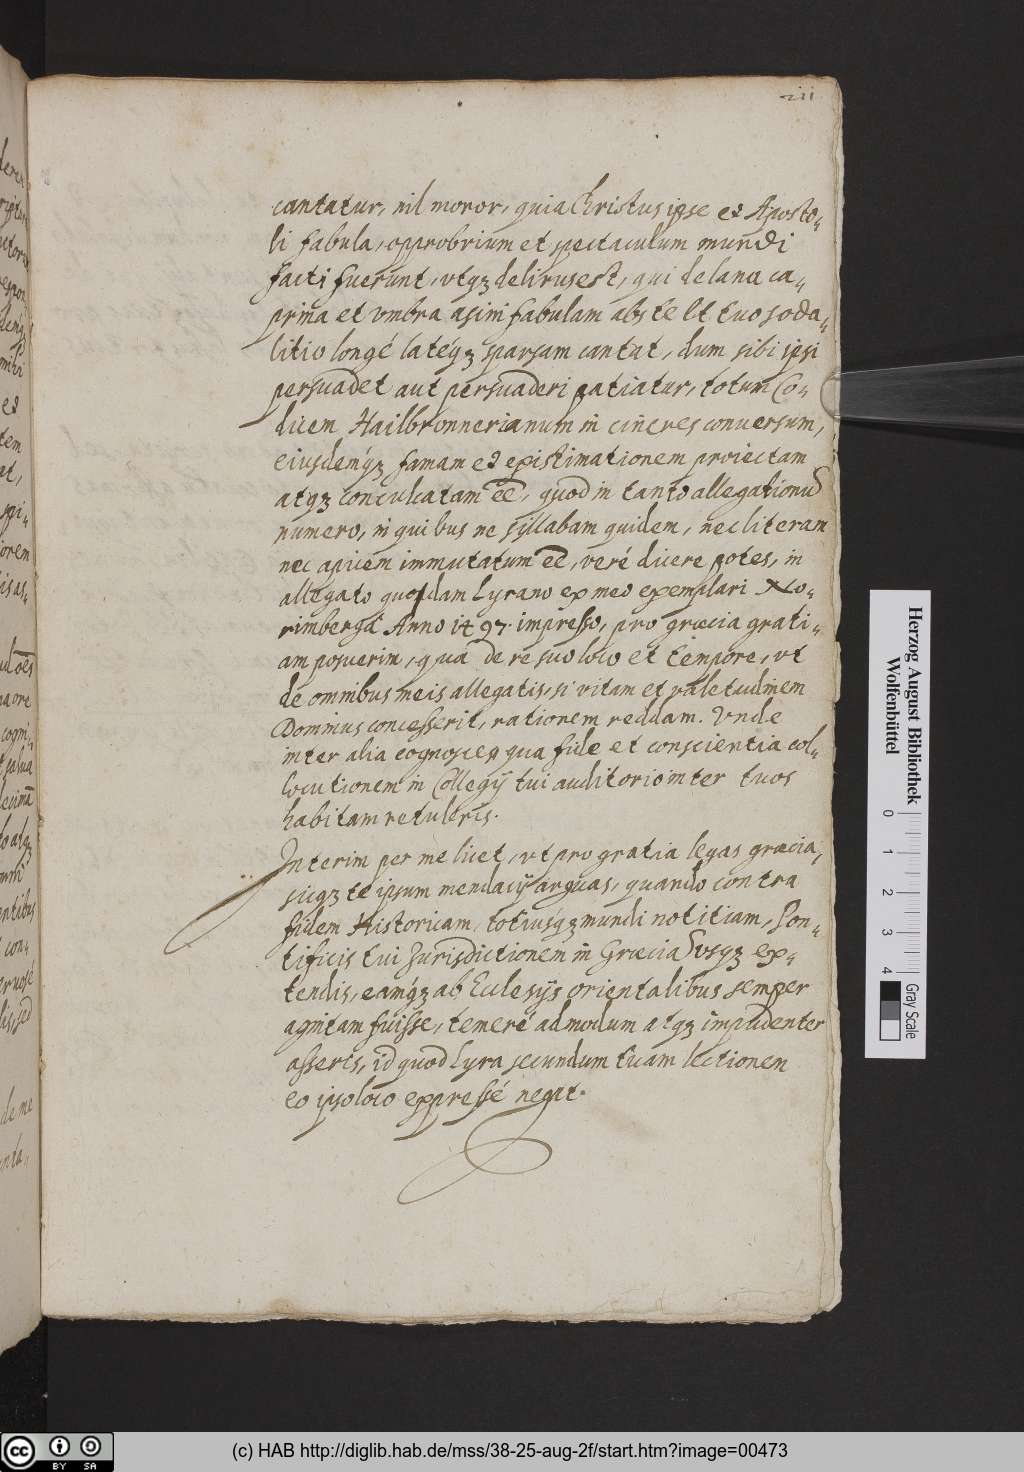 211
cantatur, nil moror, quia Christus ipse et Aposto-
li fabula, opprobrium et spectaculum mundi
facti fuerunt, vtq3 delirus est, qui de lana ca-
prina et vmbra asini fabulam abs te et tuo soda-
litio longé latéq3 sparsam cantat, dum sibi ipsi
persuadet aut persuaderi patiatur, totum Co-
dicem Hailbronnerianum in cineres conuersum,
eiusdemq3 famam et existimationem proiectam
atq3 conculcatam ēē, quod in tanto allegationū
numero, in quibus ne syllabam quidem, nec literam
nec apicem immutatum ēē, veré dicere potes, in
allegato quodam Lyrano ex meo exemplari No-
rimbergæ Anno 1497. impresso, pro græcia grati-
am posuerim, qua de re suo loco et tempore, vt
de omnibus meis allegatis, si vitam et valetudinem
Dominus concesserit, rationem reddam. Vnde
inter alia cognosces qua fide et conscientia col-
locutionem in Collegij tui auditorio inter tuos
habitam retuleris.
Interim per me licet, vt pro gratia legas græcia,
sicq3 te ipsum mendacij arguas, quando contra
fidem Historicam, totiusq3 mundi notitiam, Pon-
tificis tui Jurisdictionem in Græcia vsq3 ex-
tendis, eamq3 ab Ecclesijs orientalibus semper
agnitam fuisse, temeré admodum atq3 impudenter
asseris, id quod Lyra secundum tuam lectionem
eo ipso loco expressé negat.
Herzog August Bibliothek
Wolfenbüttel
0 1 2 3 4
Gray Scale
cc BY SA
(c) HAB http://diglib.hab.de/mss/38-25-aug-2f/start.htm?image=00473